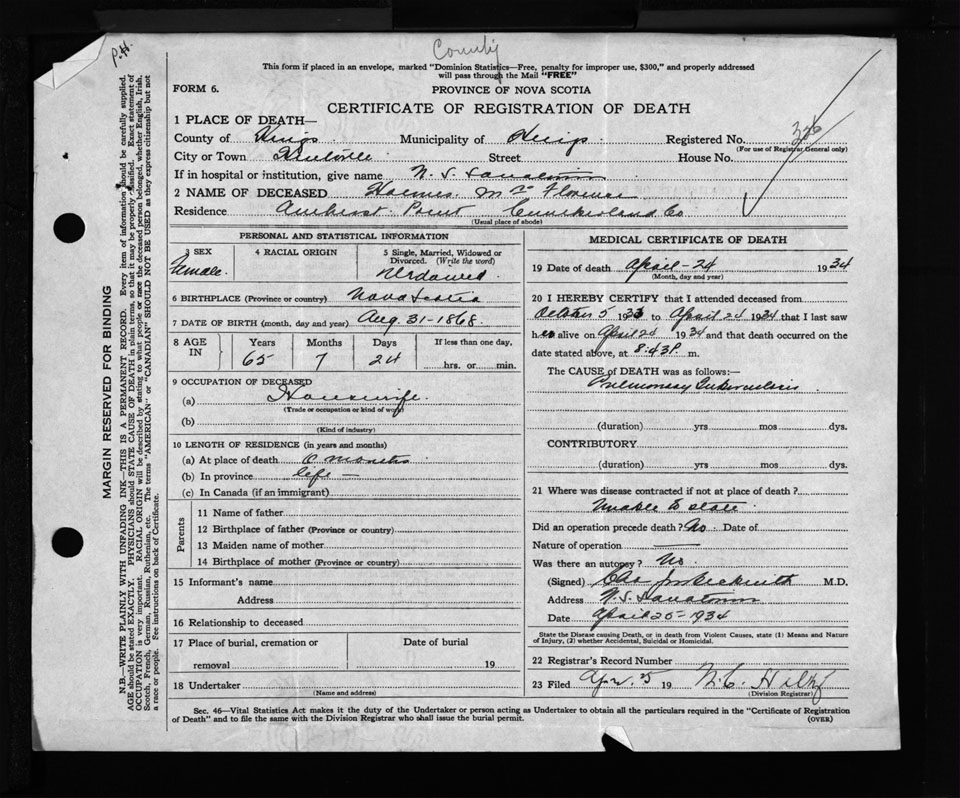 County
This form if placed in an envelope, marked "Dominion Statistics—Free, penalty for improper use, $300," and properly addressed
will pass through the Mail "FREE"
FORM 6.
PROVINCE OF NOVA SCOTIA
CERTIFICATE OF REGISTRATION OF DEATH
1 PLACE OF DEATH—
County of Kings Municipality of Kings Registered No.
(For use of Registrar General only)
City or Town Kentville Street House No.
If in hospital or institution, give name N. S. Sanatorium
2 NAME OF DECEASED Holmes Mrs Florence
Residence Amherst Point Cumberland Co
(Usual place of abode)
PERSONAL AND STATISTICAL INFORMATION
3 SEX
Female.
4 RACIAL ORIGIN
5 Single, Married, Widowed or
Divorced. (Write the word)
Widowed
6 BIRTHPLACE (Province or country) Nova Scotia
7 DATE OF BIRTH (month, day and year) Aug. 31-1868.
8 AGE IN Years Months Days If less than one day,
65 7 24 hrs. or min.
9 OCCUPATION OF DECEASED
(a) Housewife.
(Trade or occupation or kind of work)
(b)
(Kind of industry)
10 LENGTH OF RESIDENCE (in years and months)
(a) At place of death months
(b) In province life —
(c) In Canada (if an immigrant)
Parents
11 Name of father
12 Birthplace of father (Province or country)
13 Maiden name of mother
14 Birthplace of mother (Province or country)
15 Informant's name
Address
16 Relationship to deceased
17 Place of burial, cremation or
removal
Date of burial
19
18 Undertaker
(Name and address)
MEDICAL CERTIFICATE OF DEATH
19 Date of death April-24 1934
(Month, day and year)
20 I HEREBY CERTIFY that I attended deceased from
October 5 1933 to April 24 1934 that I last saw
her alive on April 24 1934 and that death occurred on the
date stated above, at 8:43 P. m.
The CAUSE of DEATH was as follows:—
Pulmonary Tuberculosis
(duration) yrs mos dys.
CONTRIBUTORY
(duration) yrs mos dys.
21 Where was disease contracted if not at place of death?
Unable to state
Did an operation precede death? No. Date of
Nature of operation —
Was there an autopsy? No.
(Signed) Beckwith M.D.
Address N.S. Sanatorium
Date April 25-1934
State the Disease causing Death, or in death from Violent Causes, state (1) Means and Nature
of Injury, (2) whether Accidental, Suicidal or Homicidal.
22 Registrar's Record Number
23 Filed Apr. 25 19 N.C. Hiltz
(Division Registrar)
Sec. 46—Vital Statistics Act makes it the duty of the Undertaker or person acting as Undertaker to obtain all the particulars required in the "Certificate of Registration
of Death" and to file the same with the Division Registrar who shall issue the burial permit. (OVER)
MARGIN RESERVED FOR BINDING
N.B.—WRITE PLAINLY WITH UNFADING INK—THIS IS A PERMANENT RECORD. Every item of information should be carefully supplied.
AGE should be stated EXACTLY. PHYSICIANS should STATE CAUSE OF DEATH in plain terms, so that it may be properly classified. Exact statement of
OCCUPATION is very important. RACIAL ORIGIN will be described by stating to what people or race the deceased person belonged, whether English, Irish,
Scotch, French, German, Russian, Ruthenian, etc. The terms "AMERICAN" or "CANADIAN" SHOULD NOT BE USED as they express citizenship but not
a race or people. See instructions on back of Certificate.